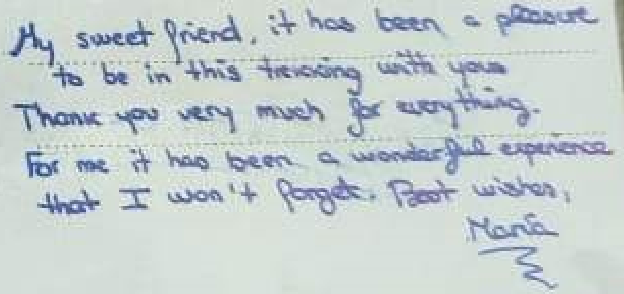 My sweet friend, it has been a pleasure
to be in this trekking with you.
Thank you very much for everything.
For me it has been a wonderful experience
that I won't forget. Best wishes,
María